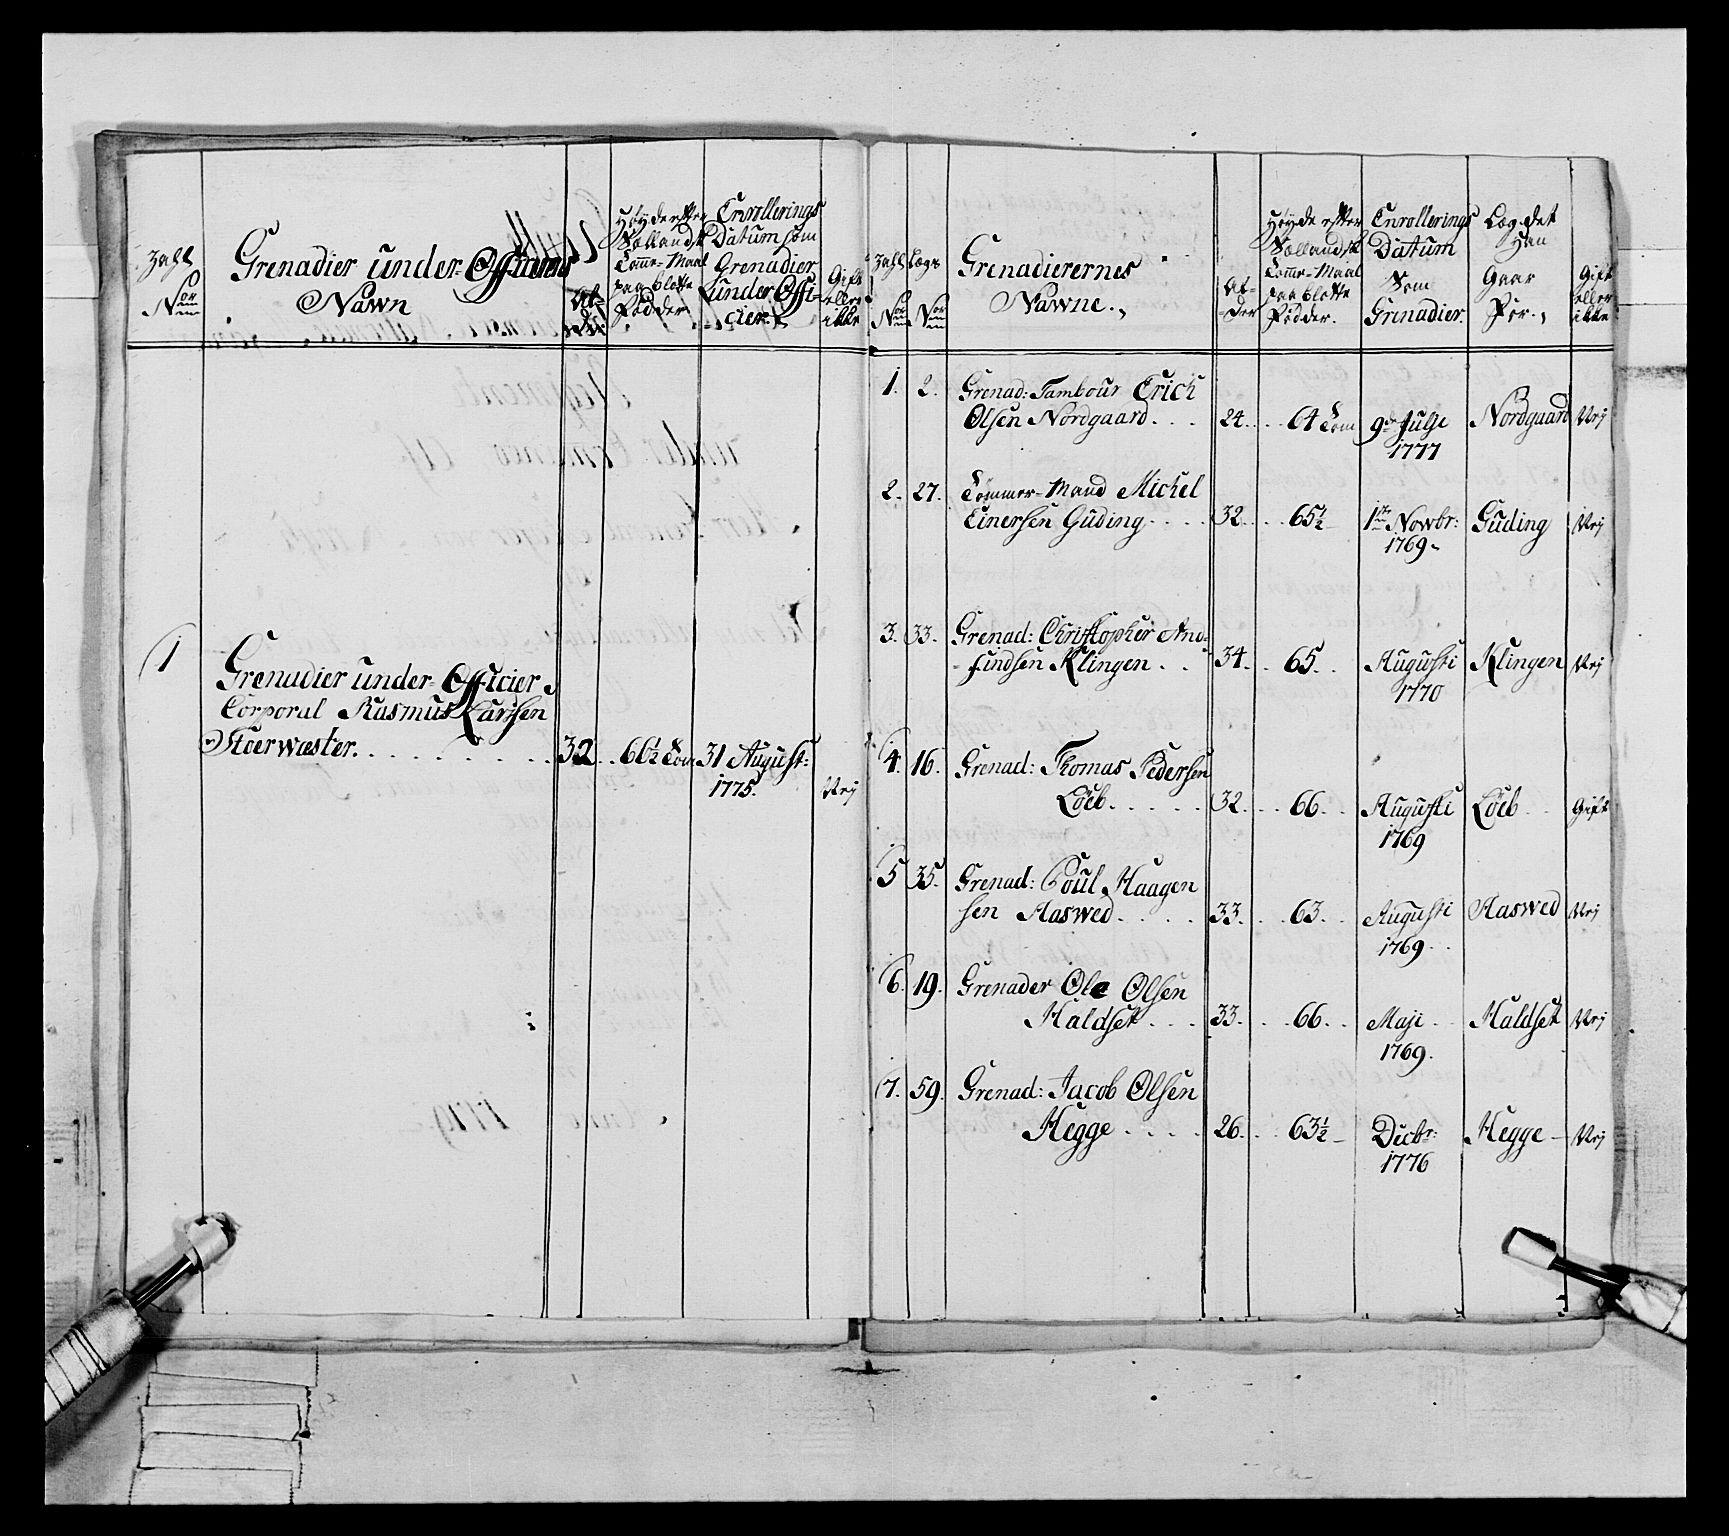 Zahl
Grenadier under-Officierens
Nawn
Al-
der
Høyde efter
Siellandsk
Tomme-Maal
paa blotte
Fødder
Enrollerings
Datum som
Grenadier
under Offi-
cier.
Gift
eller
ikke
1
Grenadier under-Officier
Corporal Rasmus Larssen
Stoerwæster.
32
66½ Tom
31 August:
1775.
Urj
Zahl
Lægs
Grenadierernes
Nawne.
Al-
der
Høyde efter
Siellandsk
Tomme-Maal
paa blotte
Fødder.
Enrollerings
Datum
Som
Grenadier.
Læg det
Han
Gaar
For.
Gift
eller
ikke
1. 2. Grenad: Tambour Erich
Olsen Nordgaard . . . 24. 64 Tom 9de Julje Nordgaard Urj
1777
2. 27. Tømmer-Mand Michel
Einersen Guding . . . . 32. 65½ 1ste Nowbr: Guding Urj
1769
3. 33. Grenad: Christopher And-
findsen Klingen . . . 34. 65. Augusti Klingen Urj
1770
4. 16. Grenad: Thomas Pedersen
Løeb . . . . . 32. 66. Augusti Løeb Gift
1769
5 35. Grenad: Poul Haagen
sen Aaswed . . . . 33. 63. Augusti Aaswed Urj
1769
6. 19. Grenader Ole Olsen
Haldset . . . 33. 66. Maji Haldset Urj
1769.
7. 59. Grenad: Jacob Olsen
Hegge . . . . 26. 63½ Decbr: Hegge Urj
1776